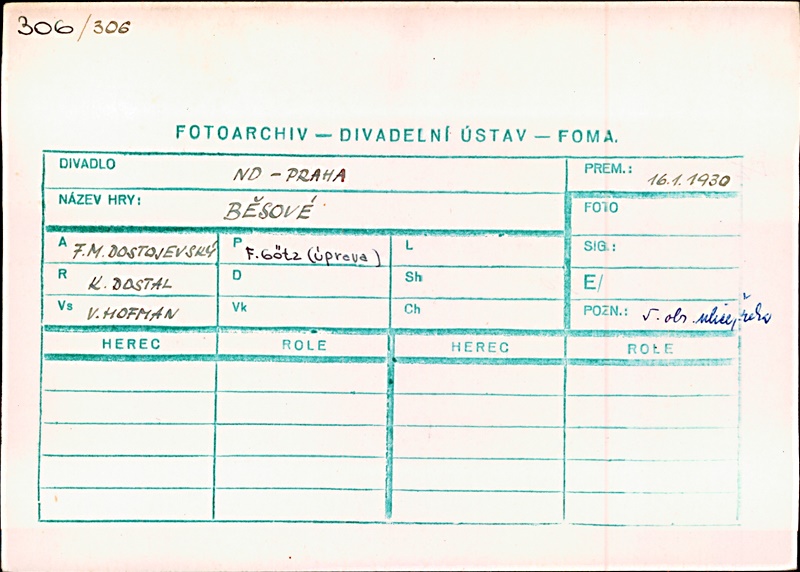 306/306
FOTOARCHIV — DIVADELNÍ ÚSTAV — FOMA.
DIVADLO ND - PRAHA PREM.: 16.1.1930
NÁZEV HRY: BĚSOVÉ FOTO
A F.M. DOSTOJEVSKÝ P F. Götz (úprava) L SIG.:
R K. DOSTAL D Sh E/
Vs V. HOFMAN Vk Ch POZN.: 5. obr. ulice,
HEREC ROLE HEREC ROLE